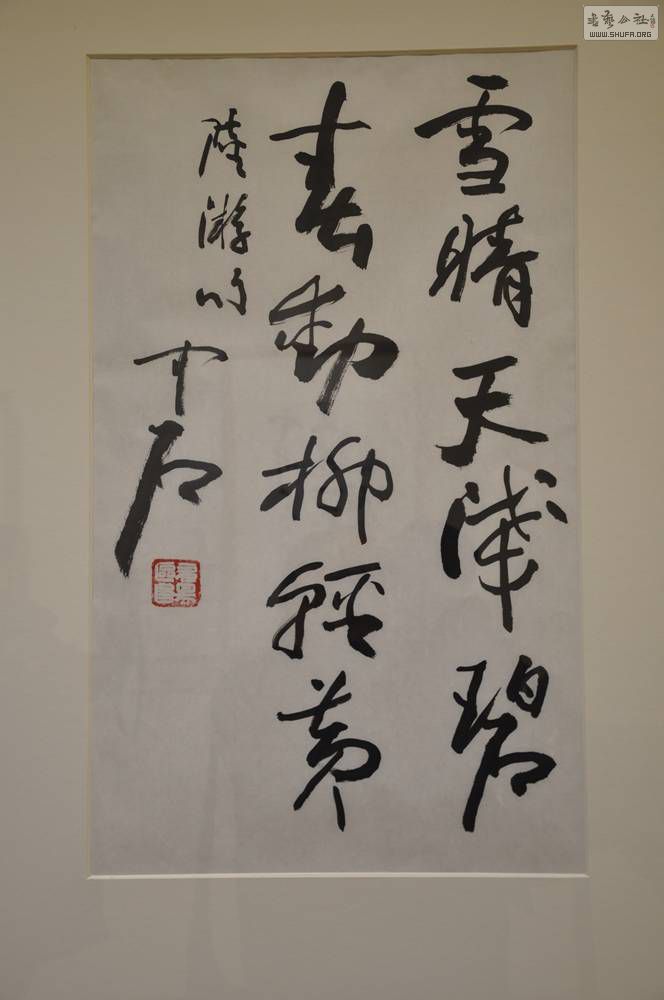 雪晴天淺碧
春動柳輕黃
陸游句
中石
書藝公社
WWW.SHUFA.ORG